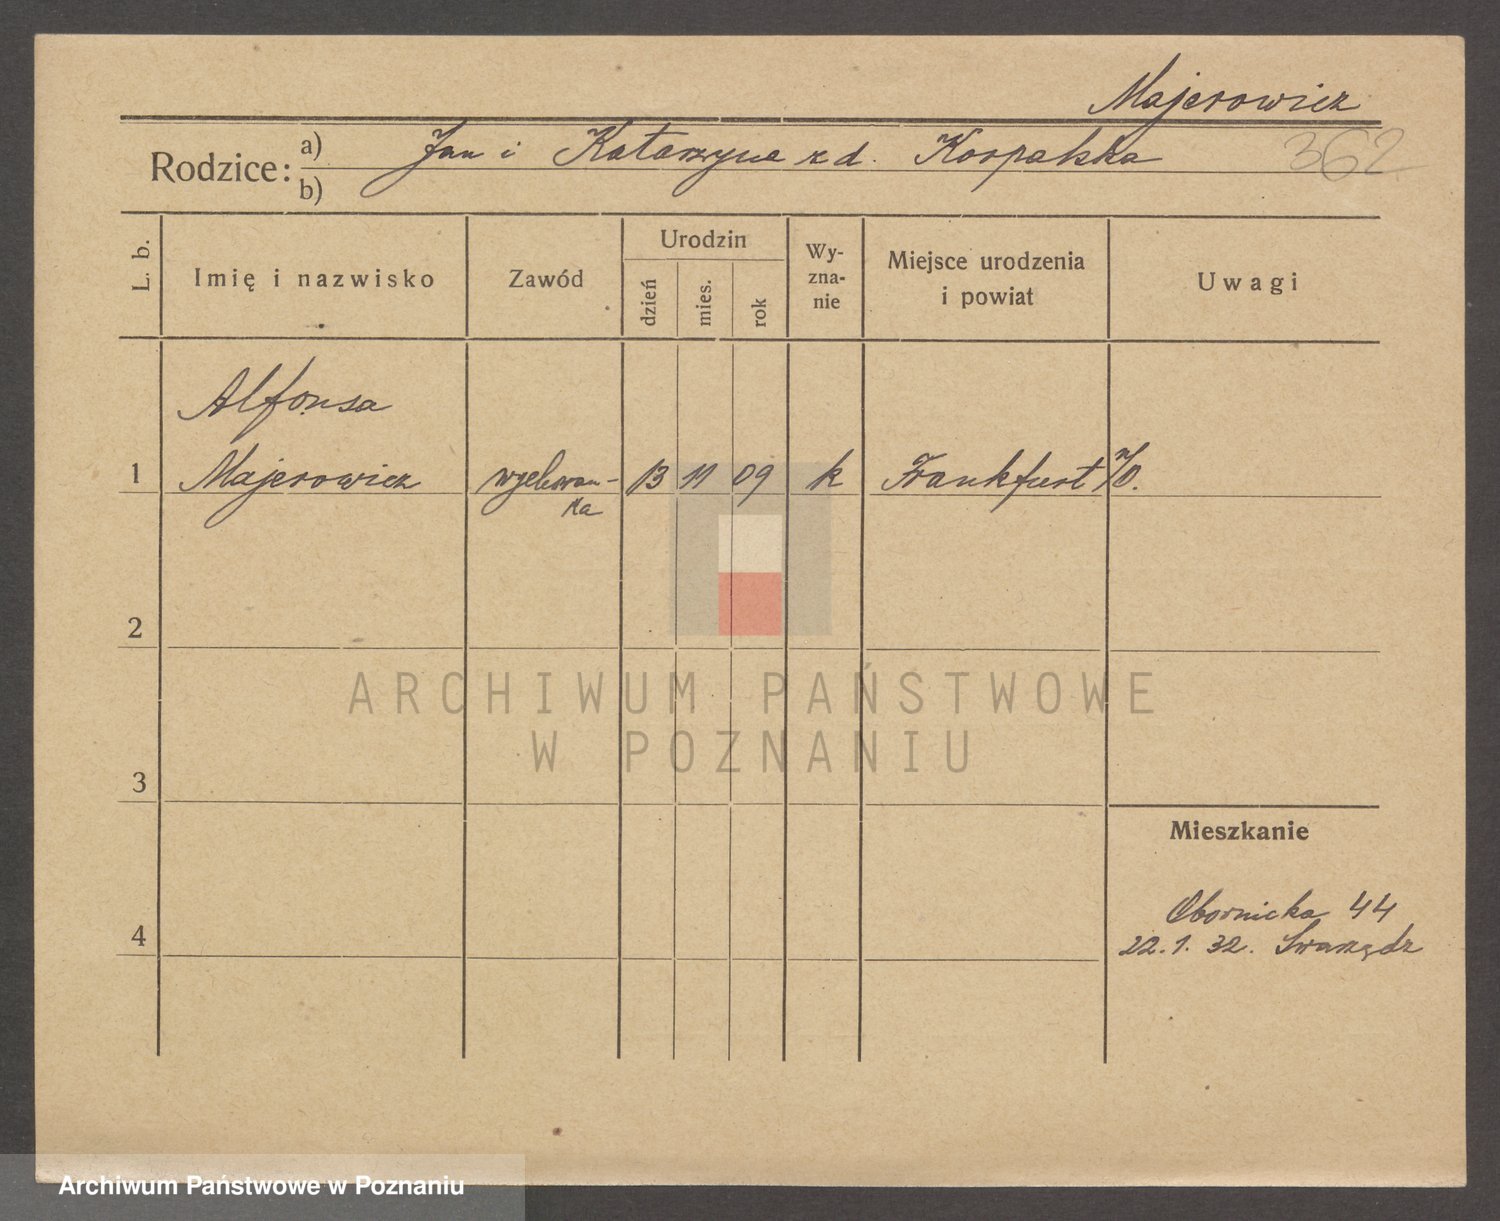 Majerowicz
Rodzice: a) Jan i Katarzyna z d. Korpalska 362
b)
L. b.
Imię i nazwisko
Zawód
Urodzin
dzień
mies.
rok
Wy-
zna-
nie
Miejsce urodzenia
i powiat
Uwagi
Alfonsa
1 Majerowicz wychowan- 13 11 09 k Frankfurt n/O.
ka
2
3
4
Mieszkanie
Obornicka 44
22.1.32. Swarzędz
ARCHIWUM PAŃSTWOWE
W POZNANIU
Archiwum Państwowe w Poznaniu